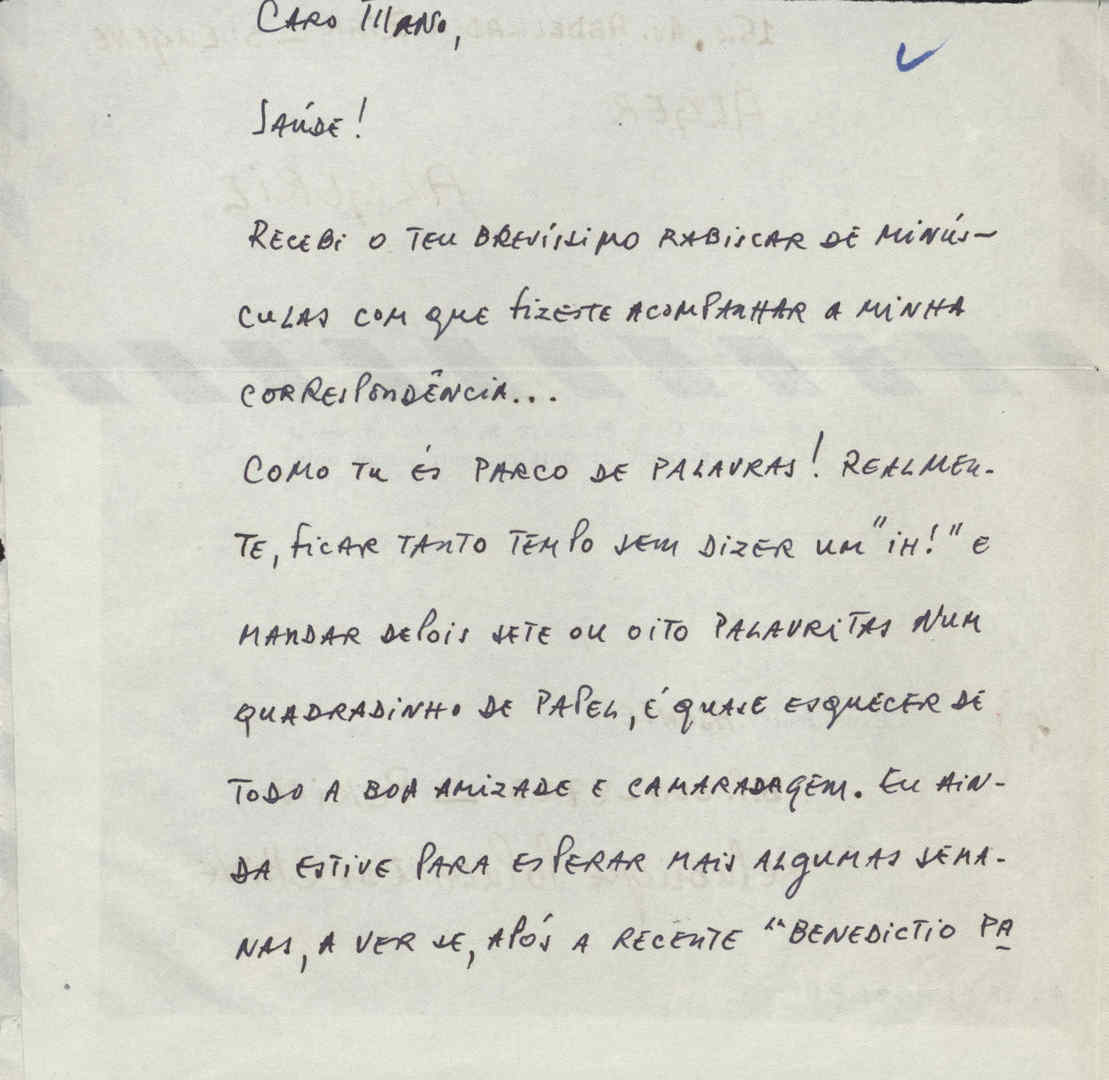 CARO MANO,
SAÚDE!
RECEBI O TEU BREVÍSSIMO RABISCAR DE MINÚS-
CULAS COM QUE FIZESTE ACOMPANHAR A MINHA
CORRESPONDÊNCIA...
COMO TU ÉS PARCO DE PALAVRAS! REALMEN-
TE, FICAR TANTO TEMPO SEM DIZER UM "IH!" E
MANDAR DEPOIS SETE OU OITO PALAVRITAS NUM
QUADRADINHO DE PAPEL, É QUASE ESQUECER DE
TODO A BOA AMIZADE E CAMARADAGEM. EU AIN-
DA ESTIVE PARA ESPERAR MAIS ALGUMAS SEMA-
NAS, A VER SE, APÓS A RECENTE "BENEDICTIO PA